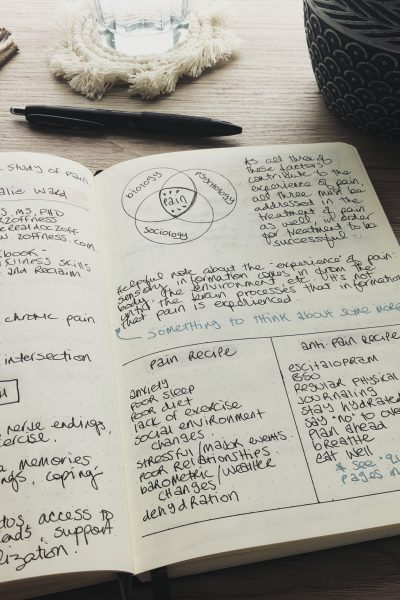 study of pain
alie Ward
MS, PhD
zoffness.com
ibook:
illness skills
and Reclaim
chronic pain
intersection
nerve endings,
ercise.
memories
ngs, coping
access to
ends, support
lization.
biology
psychology
pain
sociology
As all three of
these factors
contribute to the
experience of pain,
all three must be
addressed in the
treatment of pain
as well, in order
for treatment to be
successful.
Helpful note about the "experience" of pain:
sensory information comes in from the
body, the environment, etc. It's not
until the brain processes that information
that pain is experienced.
something to think about some more
pain recipe
anxiety
poor sleep
poor diet
lack of exercise
social environment
changes
stressful/major events
poor relationships
barometric/weather
changes
dehydration
anti pain recipe
escitalopram
Regular physical
journaling
stay hydrated
say "no" to over
plan ahead
breathe
eat well
* see
pages in